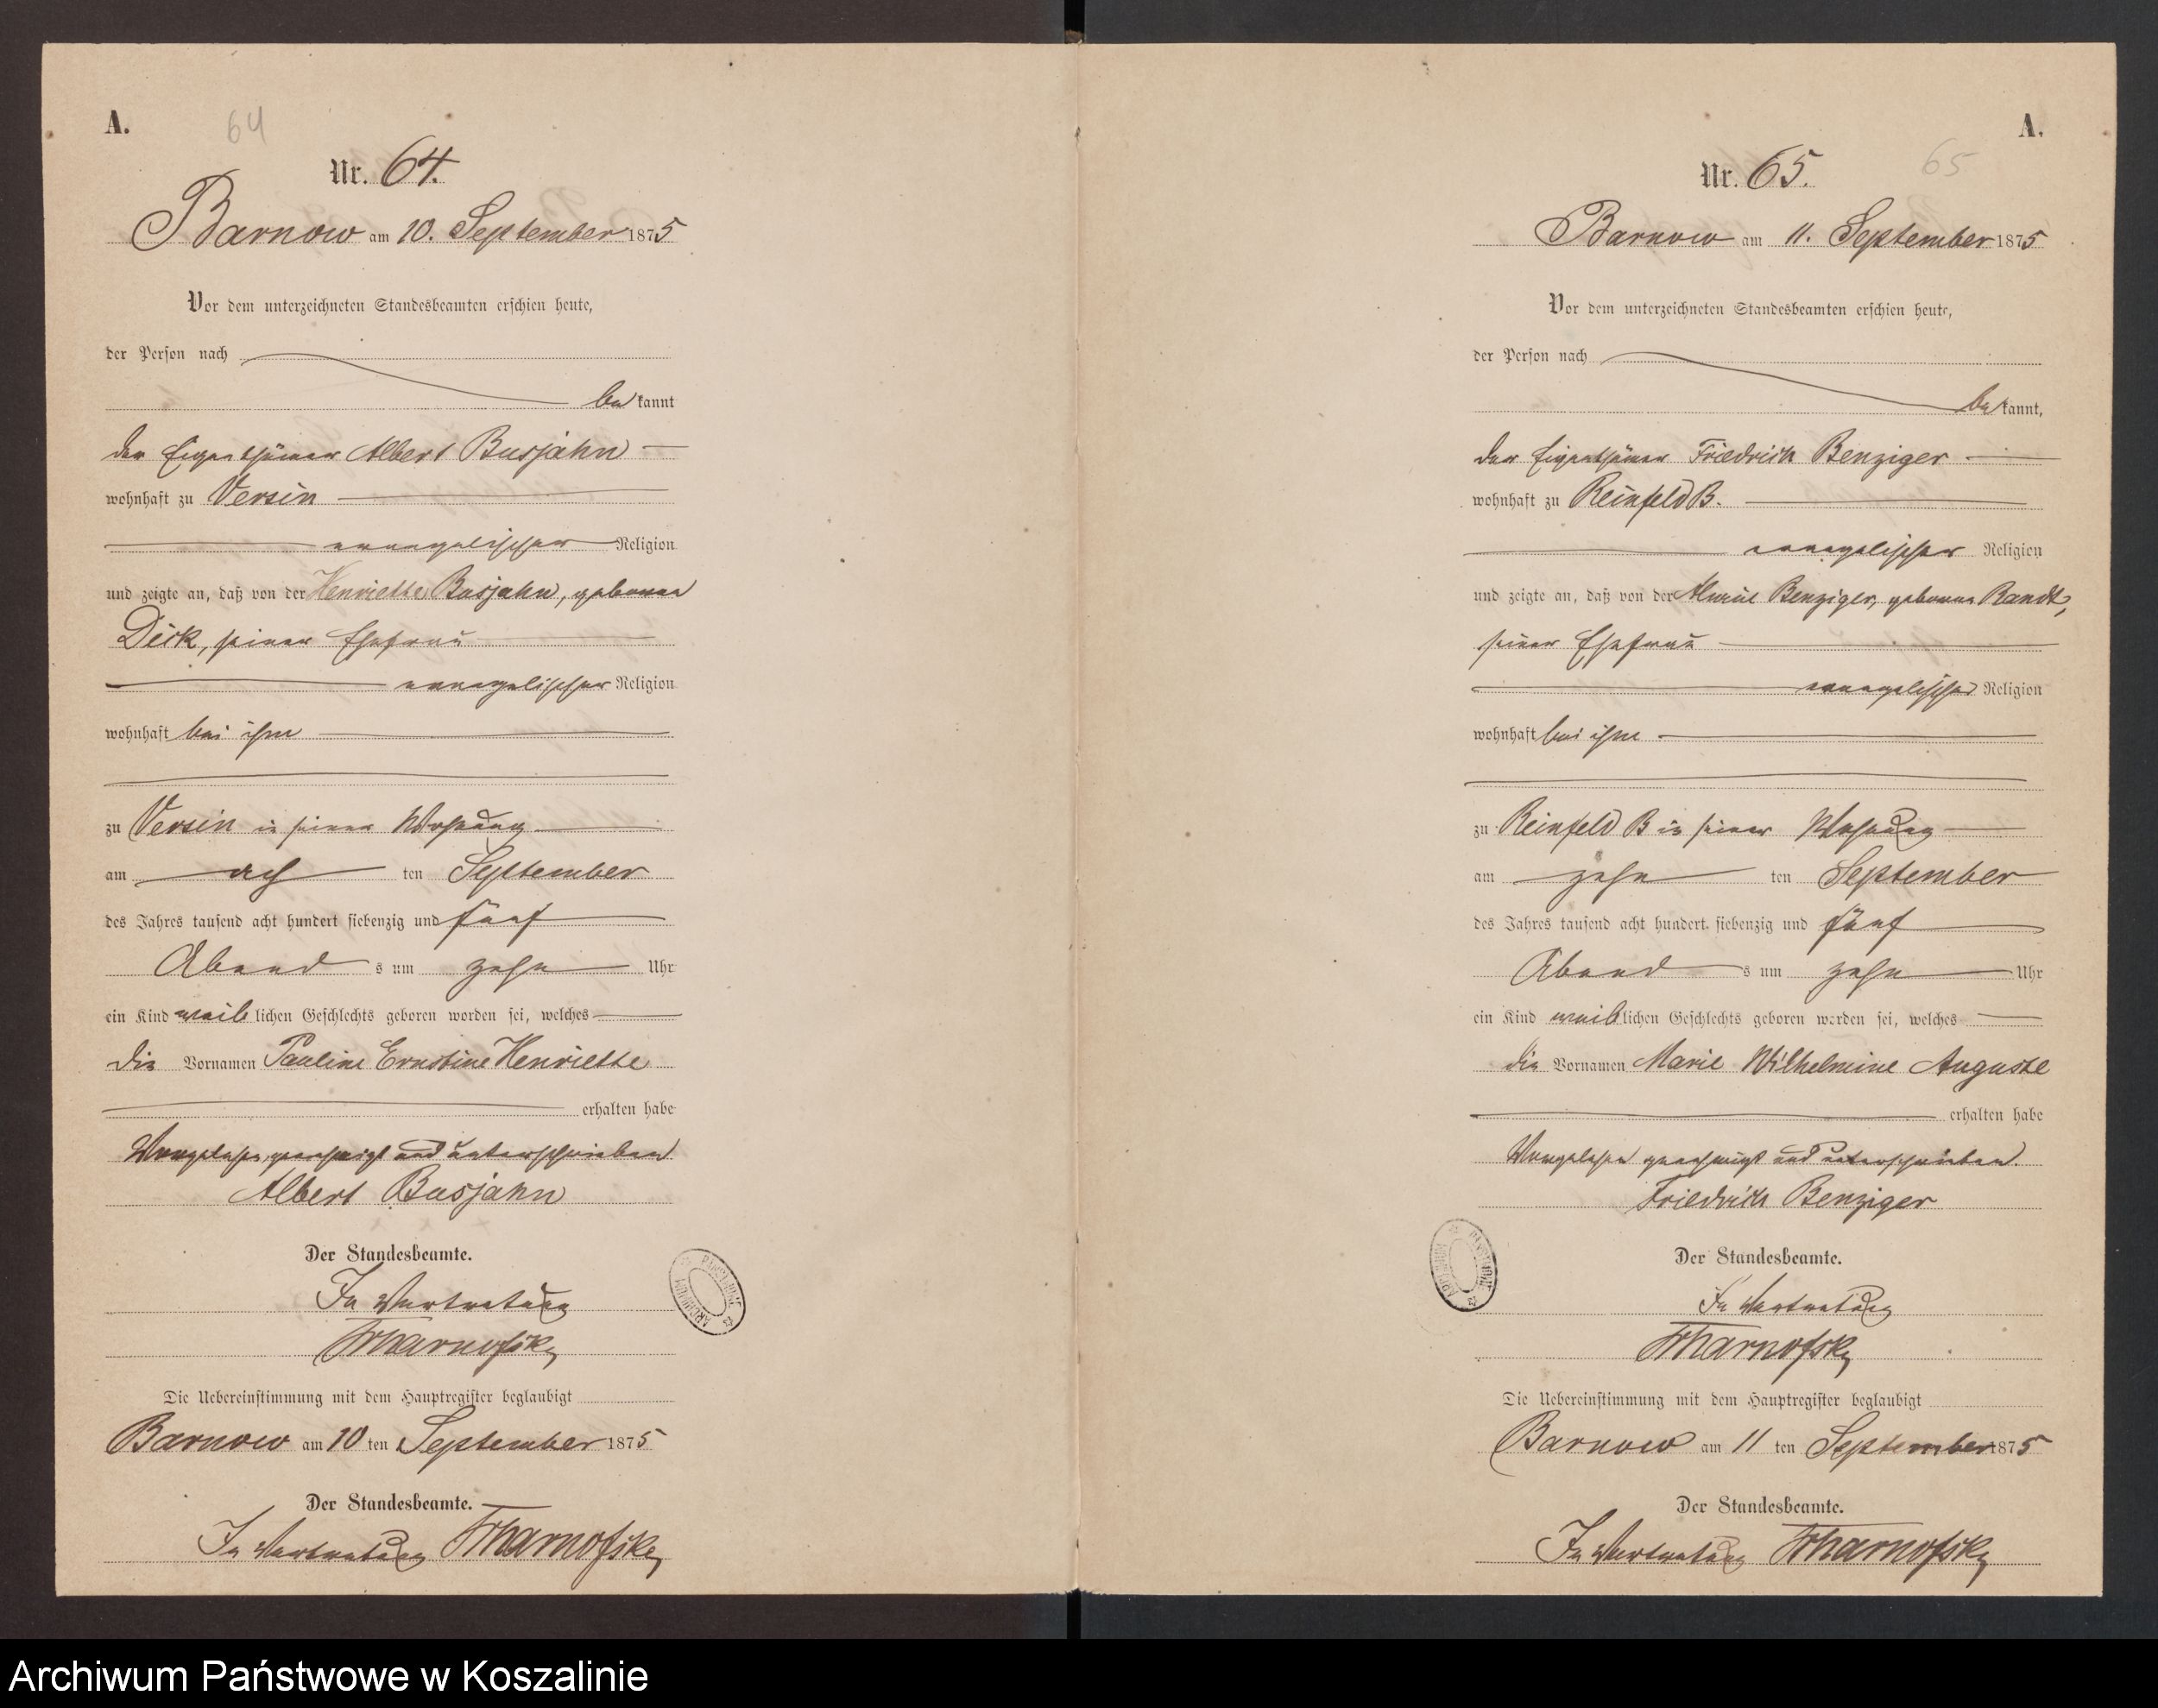 A.
64
Nr. 64.
Barnow am 10. September 1875
Vor dem unterzeichneten Standesbeamten erschien heute,
der Person nach
bekannt
der Eigenthümer Albert Busjahn
wohnhaft zu Versin
evangelischer Religion
und zeigte an, daß von der Henriette Busjahn, geborene
Dick, seiner Ehefrau
evangelischer Religion
wohnhaft bei ihm
zu Versin in seiner Wohnung
am ach ten September
des Jahres tausend acht hundert siebenzig und fünf
Abend s um zehn Uhr
ein Kind weiblichen Geschlechts geboren worden sei, welches
die Vornamen Pauline Ernstine Henriette
erhalten habe
Vorgelesen, genehmigt und unterschrieben
Albert Busjahn
Der Standesbeamte.
In Vertretung
Die Uebereinstimmung mit dem Hauptregister beglaubigt
Barnow am 10 ten September 1875
Der Standesbeamte.
In Vertretung
ARCHIWUM PAŃSTWOWE
A.
65
Nr. 65.
Barnow am 11. September 1875
Vor dem unterzeichneten Standesbeamten erschien heute,
der Person nach
bekannt,
der Eigenthümer Friedrich Benziger
wohnhaft zu Reinfeld B.
evangelischer Religion
und zeigte an, daß von der Benziger, geborene Randt,
seiner Ehefrau
evangelischer Religion
wohnhaft bei ihm
zu Reinfeld B in seiner Wohnung
am zehn ten September
des Jahres tausend acht hundert siebenzig und fünf
Abend s um zehn Uhr
ein Kind weiblichen Geschlechts geboren worden sei, welches
die Vornamen Marie Wilhelmine Auguste
erhalten habe
Vorgelesen genehmigt und unterschrieben.
Friedrich Benziger
Der Standesbeamte.
In Vertretung
Die Uebereinstimmung mit dem Hauptregister beglaubigt
Barnow am 11 ten September 1875
Der Standesbeamte.
In Vertretung
ARCHIWUM PAŃSTWOWE
Archiwum Państwowe w Koszalinie